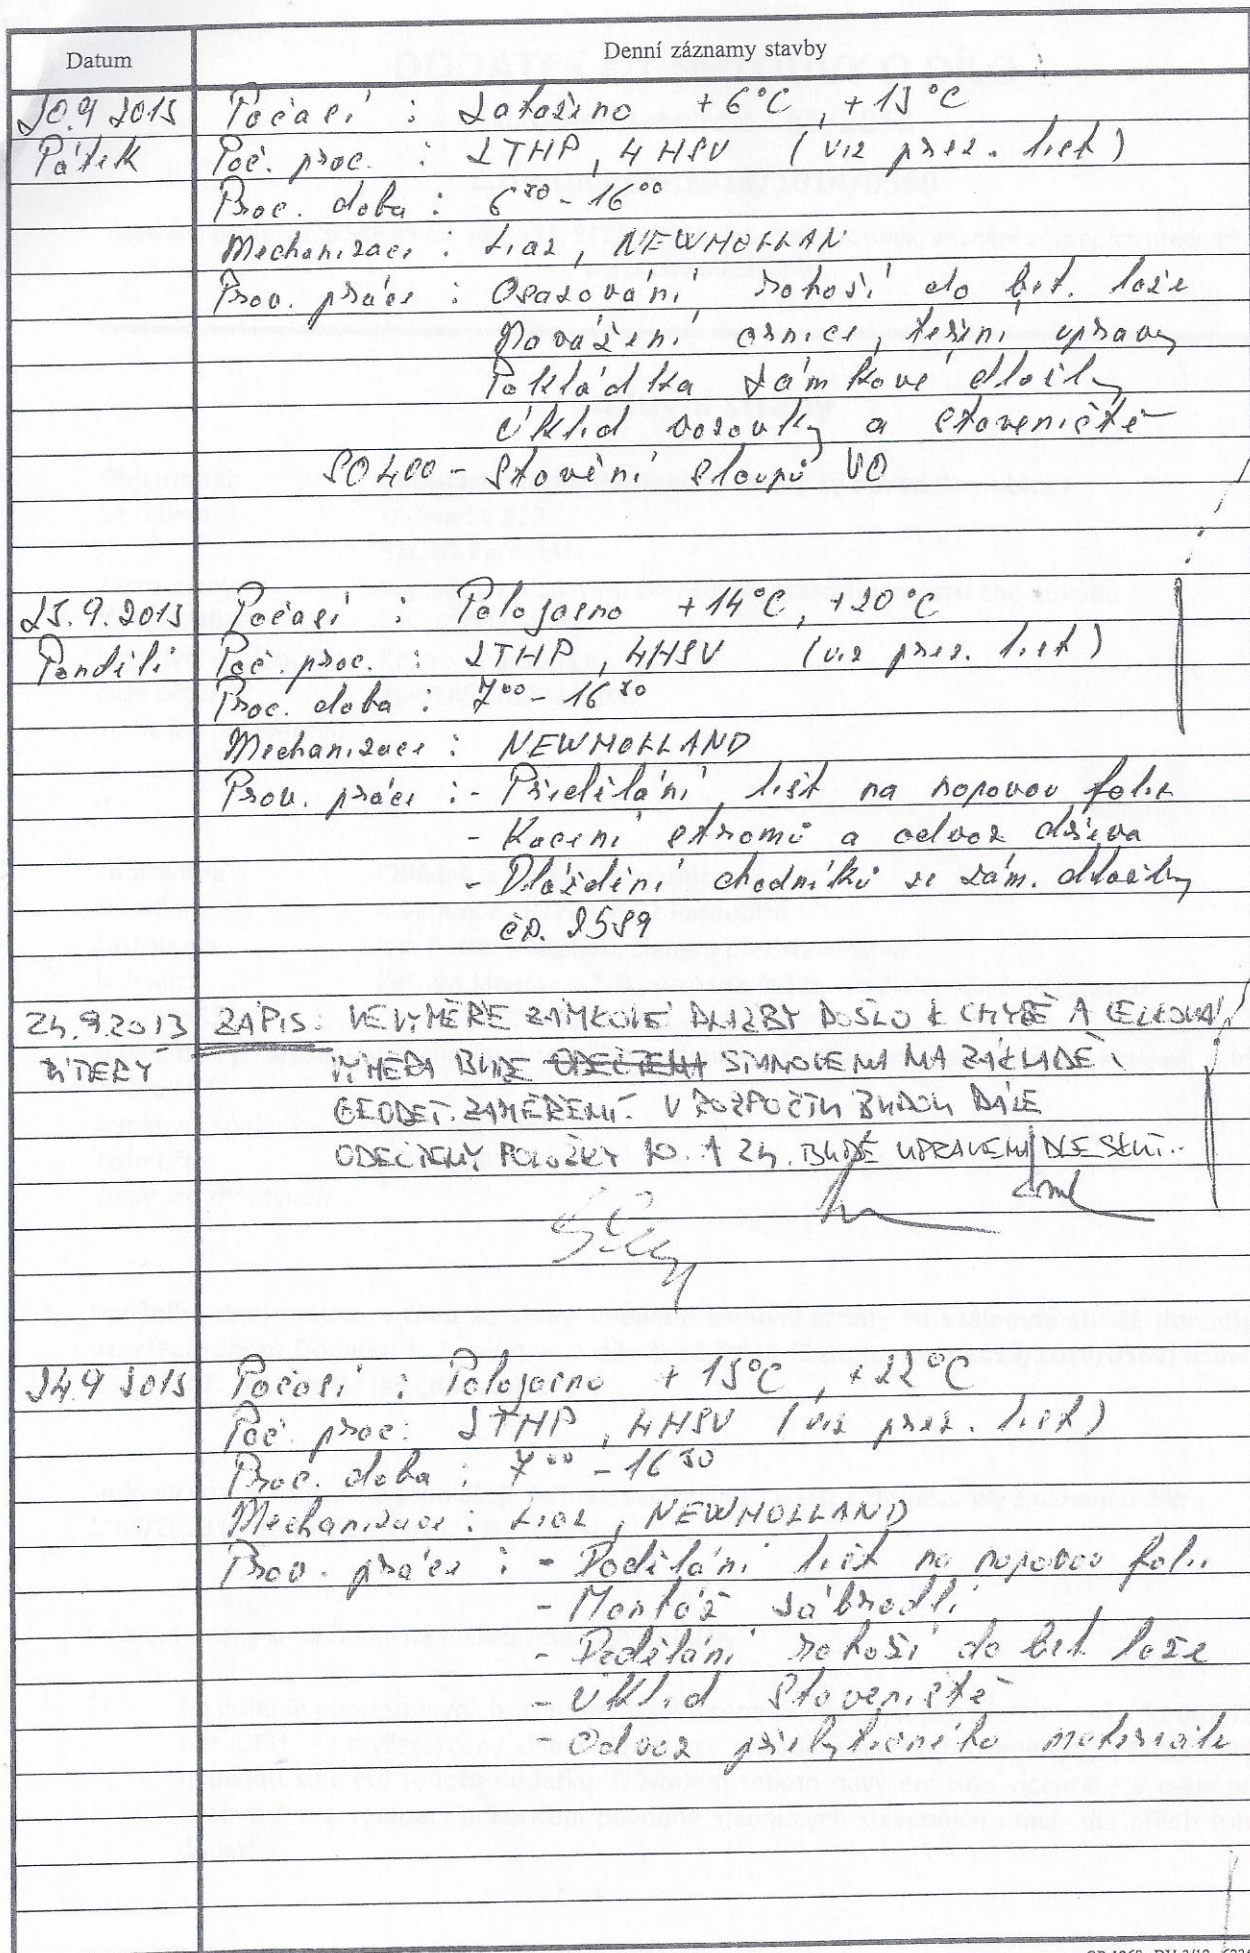 Datum Denní záznamy stavby
20.9 2013 Počasí : Zataženo +6°C, +13°C
Pátek Poč. prac. : 2THP, 4 HSV (viz prez. list)
Prac. doba : 6³⁰ - 16⁰⁰
Mechanizace : Liaz, NEWHOLLAN
Prov. práce : Osazování rohoží do bet. lože
Navážení ornice, terení úpravy
Pokládka zámkové dlažby
Úklid vozovky a staveniště
SO 400 - Stavění sloupů VO
23.9.2013 Počasí : Polojasno +14°C, +20°C
Pondělí Poč. prac. : 2THP, 4HSV (viz prez. list)
Prac. doba : 7⁰⁰ - 16³⁰
Mechanizace : NEWHOLLAND
Prov. práce : - Přidělání lišt na nopovou folii
- Kácení stromů a odvoz dřeva
- Dláždění chodníků ze zám. dlažby
čp. 2589
24.9.2013 ZÁPIS: VE VÝMĚŘE ZÁMKOVÉ DLAŽBY DOŠLO K CHYBĚ A CELKOVÁ
ÚTERÝ VÝMĚRA BUDE ODEČTENA STANOVENA NA ZÁKLADĚ
GEODET. ZAMĚŘENÍ. V ROZPOČTU BUDOU DÁLE
ODEČTENY POLOŽKY 10. A 24. BUDE UPRAVENA DLE SKUT.
24.9 2013 Počasí : Polojasno +15°C, +22°C
Poč. prac: 2THP, 4HSV (viz prez. list)
Prac. doba : 7⁰⁰ - 16³⁰
Mechanizace : Liaz, NEWHOLLAND
Prov. práce : - Dodělání lišt na nopovou foli.
- Montáž zábradlí
- Dodělání rohoží do bet lože
- Úklid staveniště
- Odvoz přebytečného materiálu